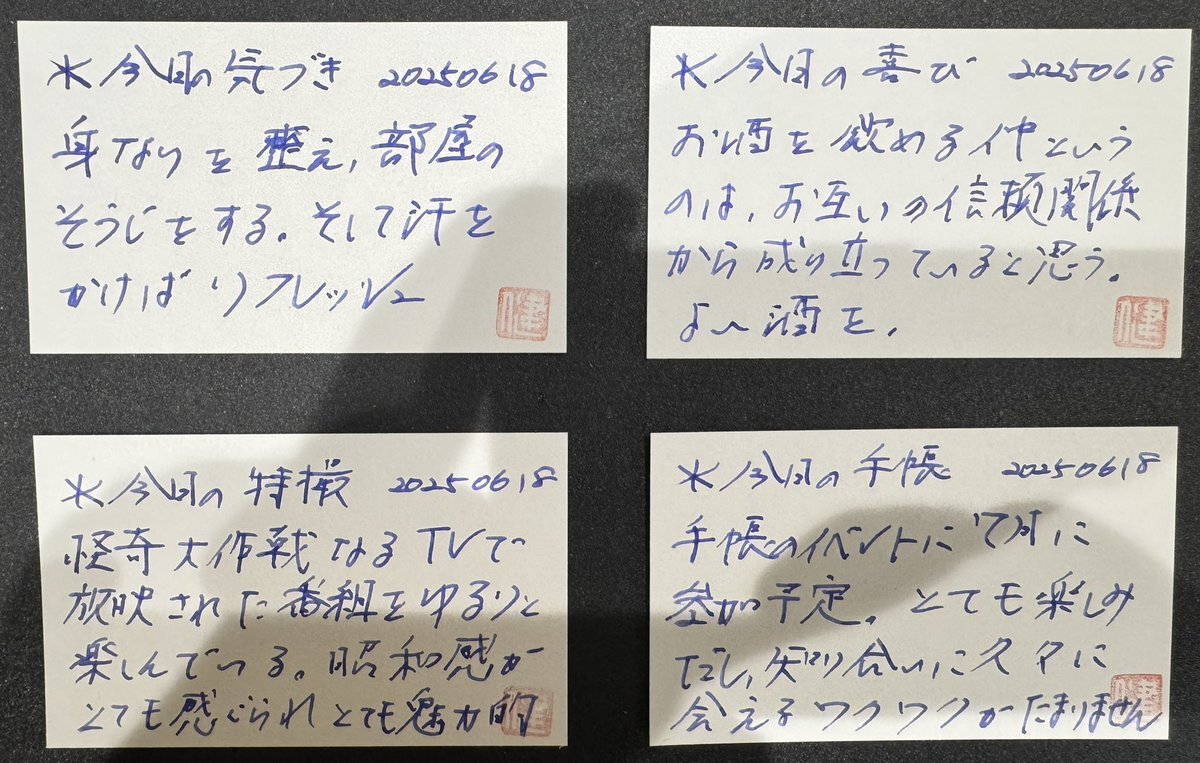 ＊今日の気づき 20250618
身なりを整え，部屋の
そうじをする。そして汗を
かけばリフレッシュ
健
＊今日の喜び 20250618
お酒を飲める仲という
のは，お互いの信頼関係
から成り立っていると思う。
よい酒を。
健
＊今日の特撮 20250618
怪奇大作戦なるTVで
放映された番組をゆるりと
楽しんでいる。昭和感が
とても感じられとても魅力的
健
＊今日の手帳 20250618
手帳のイベントに7月に
参加予定。とても楽しみ
だし，知り合いに久々に
会えるワクワクがたまりません
健